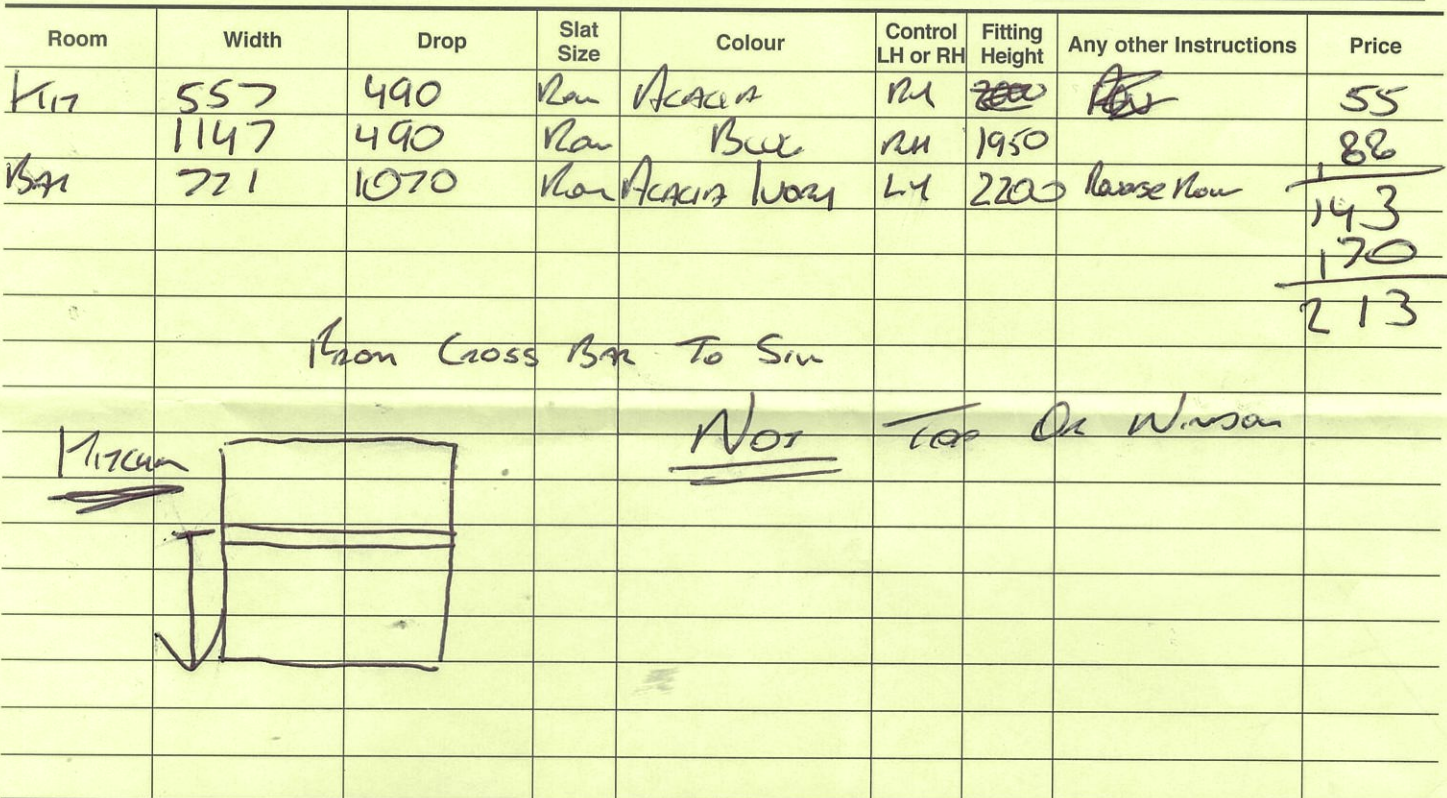 Room Width Drop Slat Size Colour Control LH or RH Fitting Height Any other Instructions Price
Kit 557 490 Roll Acacia RH 55
1147 490 Roll Blue RH 1950 88
Bar 721 1070 Roll Acacia Ivory LH 2200 Reverse Roll
143
170
213
From Cross Bar To Sill
Not Top Of Window
Kitchen